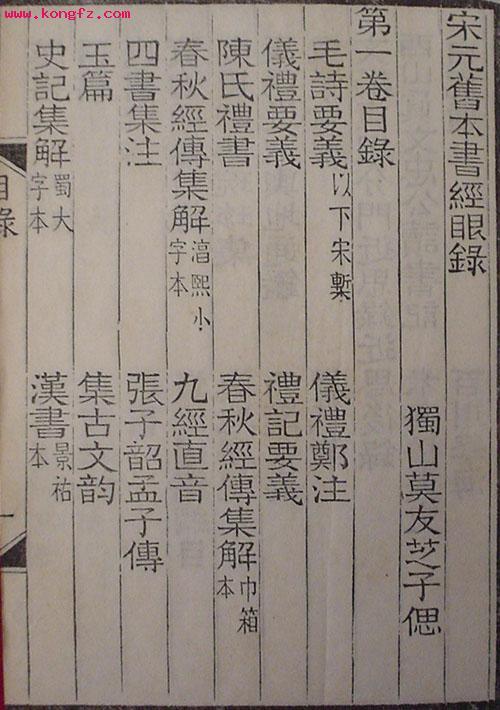 www.kongfz.com
宋元舊本書經眼錄
獨山莫友芝子偲
第一卷目錄
毛詩要義以下宋槧 儀禮鄭注
儀禮要義 禮記要義
陳氏禮書 春秋經傳集解巾箱本
春秋經傳集解湻熙小字本 九經直音
四書集注 張子韶孟子傳
玉篇 集古文韵
史記集解蜀大字本 漢書景祐本
目錄
一